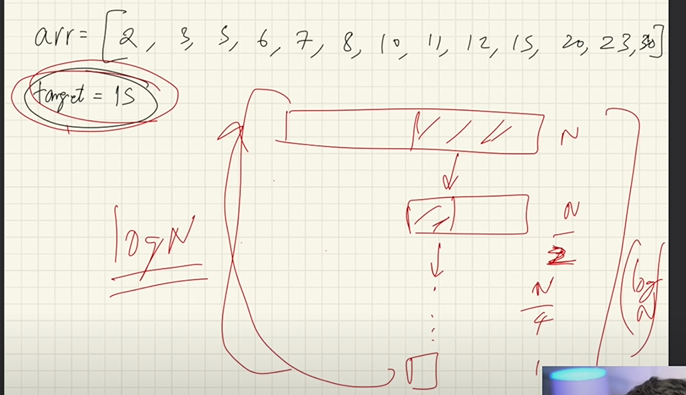 arr = [2, 3, 5, 6, 7, 8, 10, 11, 12, 15, 20, 23, 30]
target = 15
N
N/2
log N
N/4
log n
1